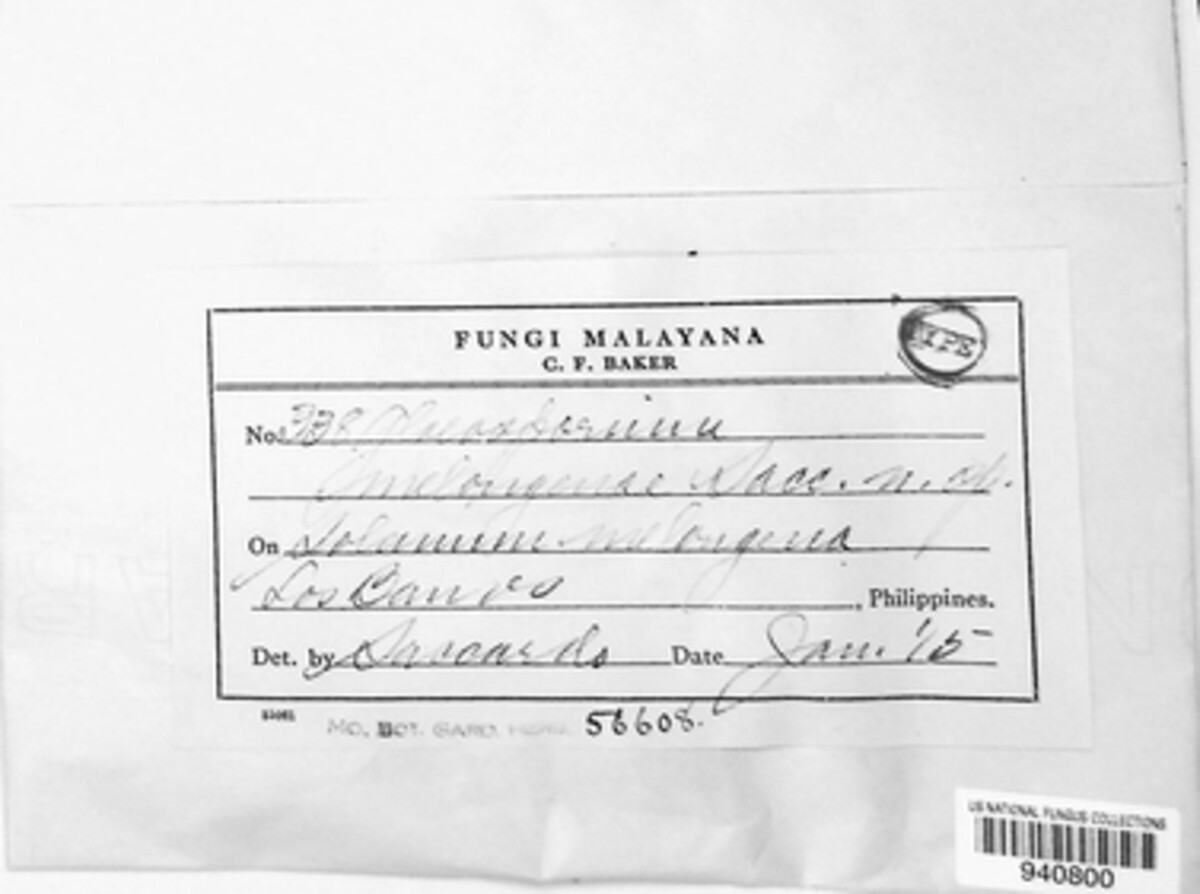 FUNGI MALAYANA
C. F. BAKER
TYPE
No. 338 Gloeosporium
melongenae Sacc. n. sp.
On Solanum melongena
Los Banos, Philippines.
Det. by Saccardo Date Jan. '15
MO. BOT. GARD. HERB. 56608.
US NATIONAL FUNGUS COLLECTIONS
940800